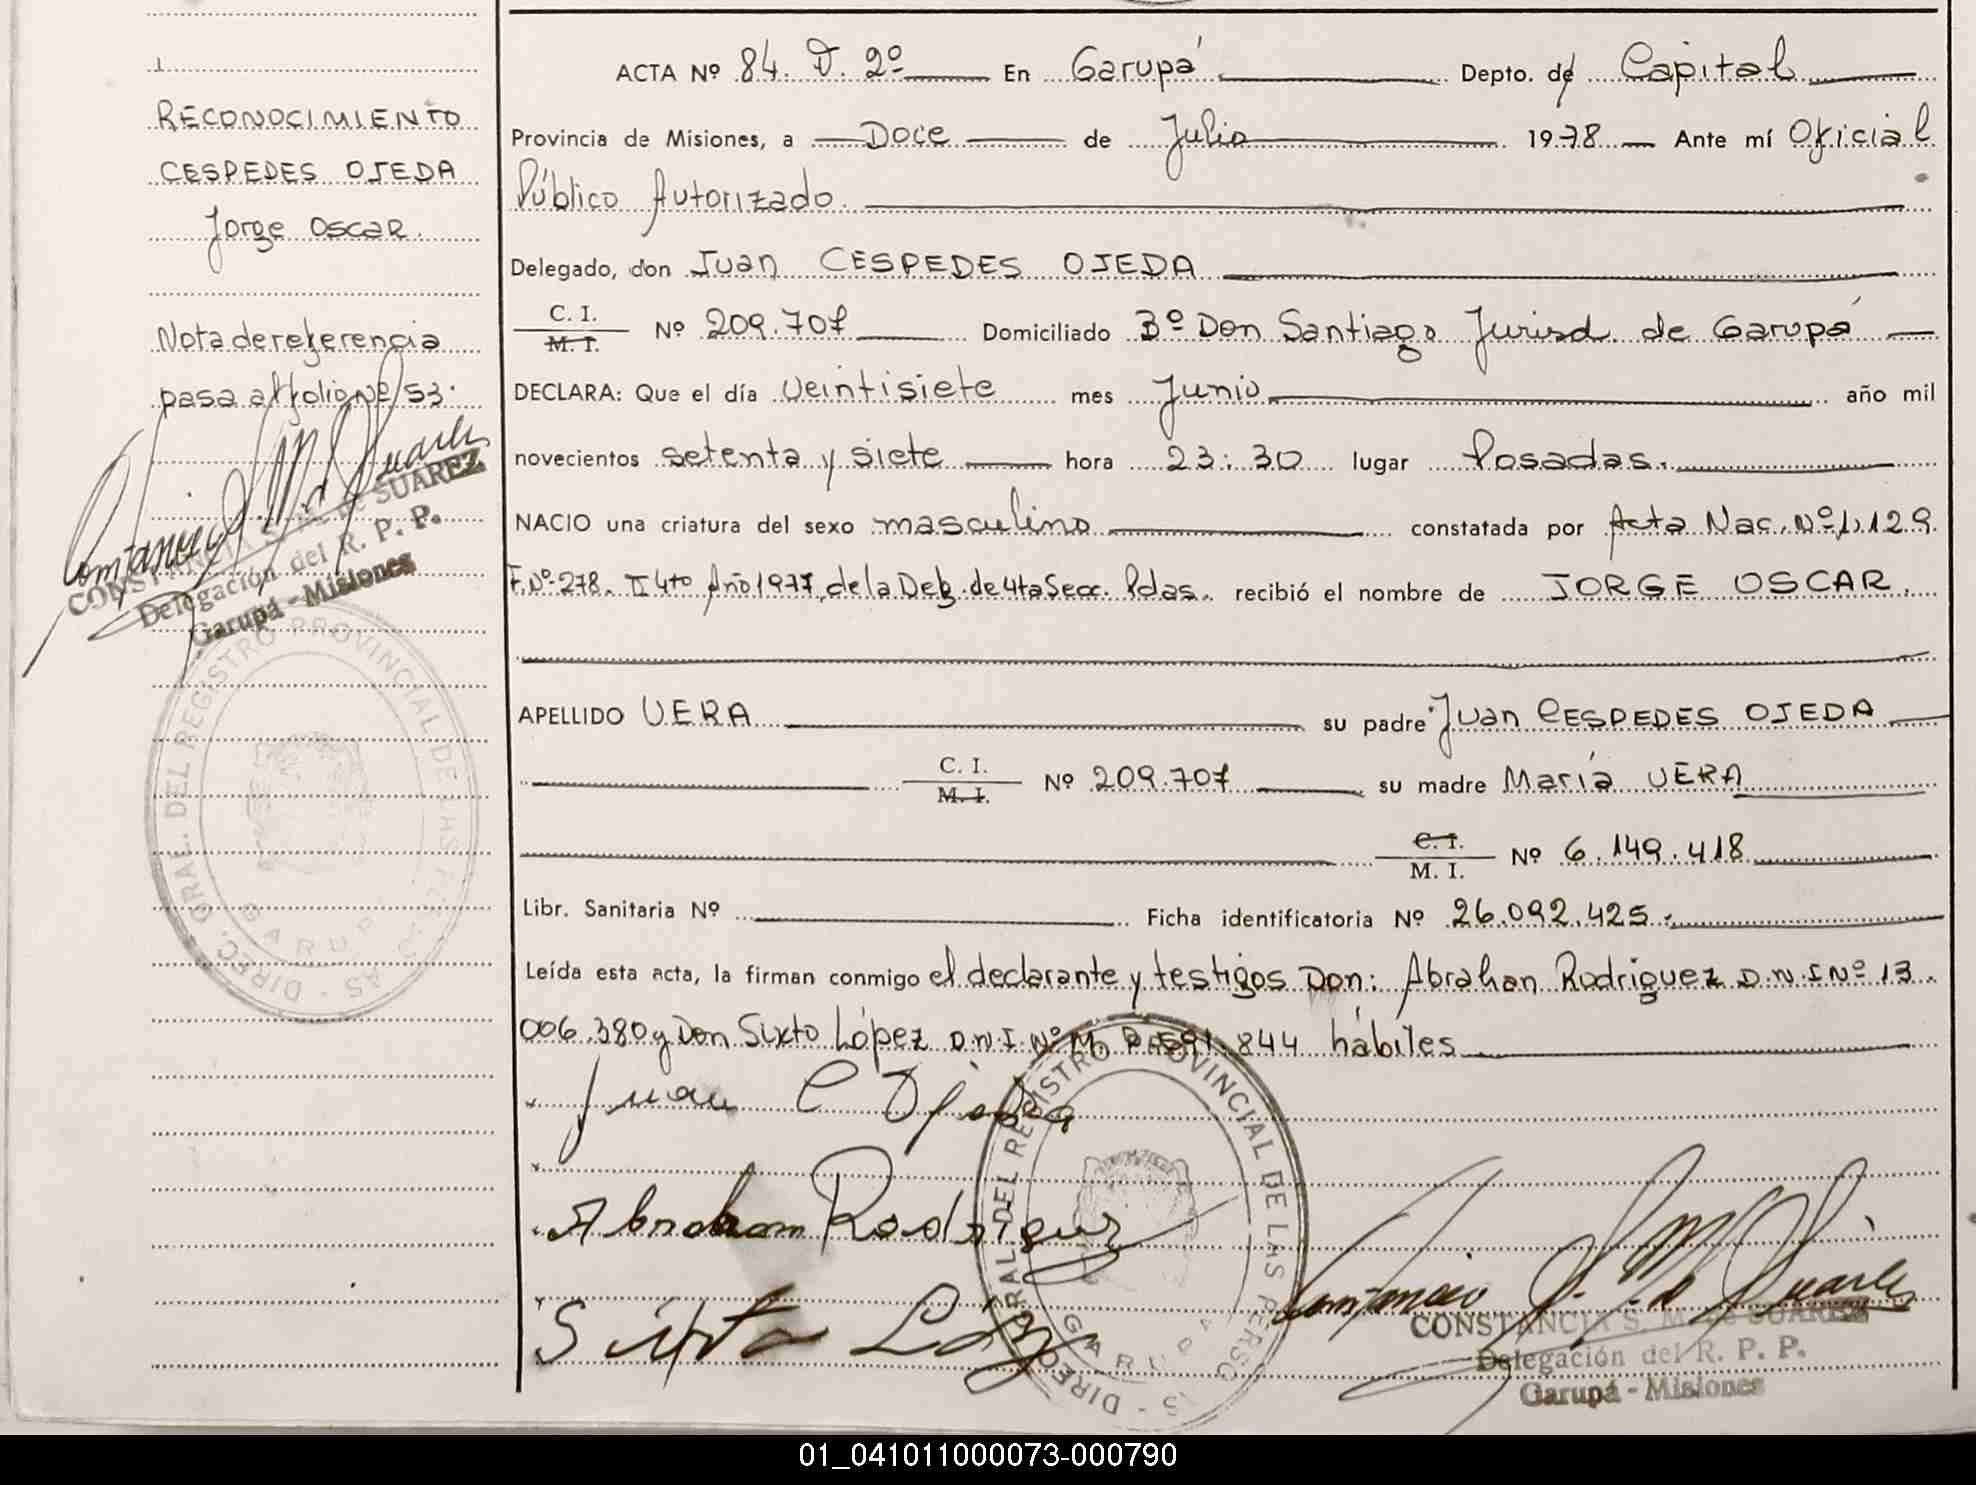 RECONOCIMIENTO
CESPEDES OJEDA
Jorge OSCAR.
Nota de referencia
pasa al folio nº 53.
CONSTANCIA S. M. de SUAREZ
Delegación del R. P. P.
Garupá - Misiones
DIREC. GRAL. DEL REGISTRO PROVINCIAL DE LAS PERSONAS - GARUPA
ACTA Nº 84. D. 2º En Garupá Depto. de Capital
Provincia de Misiones, a Doce de Julio 1978 Ante mí Oficial
Público Autorizado.
Delegado, don Juan CESPEDES OJEDA
C. I.
M. I. Nº 209.707 Domiciliado Bº Don Santiago Jurisd. de Garupá
DECLARA: Que el día veintisiete mes Junio año mil
novecientos setenta y siete hora 23:30 lugar Posadas.
NACIO una criatura del sexo masculino constatada por Acta Nac. Nº 1.129.
F. Nº 278. II 4to Año 1977, de la Deleg. de 4ta Secc. Pdas. recibió el nombre de JORGE OSCAR.
APELLIDO VERA su padre Juan CESPEDES OJEDA
C. I.
M. I. Nº 209.707 su madre María VERA
C. I.
M. I. Nº 6.149.418
Libr. Sanitaria Nº Ficha identificatoria Nº 26.092.425.
Leída esta acta, la firman conmigo el declarante y testigos Don: Abrahan Rodriguez D.N.I Nº 13.
006.380 y Don Sixto López D.N.I. Nº M. 844 hábiles
Juan C Ojeda
Abraham Rodriguez
Sixto López
DIREC. GRAL. DEL REGISTRO PROVINCIAL DE LAS PERSONAS - GARUPA
CONSTANCIA S. M. de SUAREZ
Delegación del R. P. P.
Garupá - Misiones
01_041011000073-000790